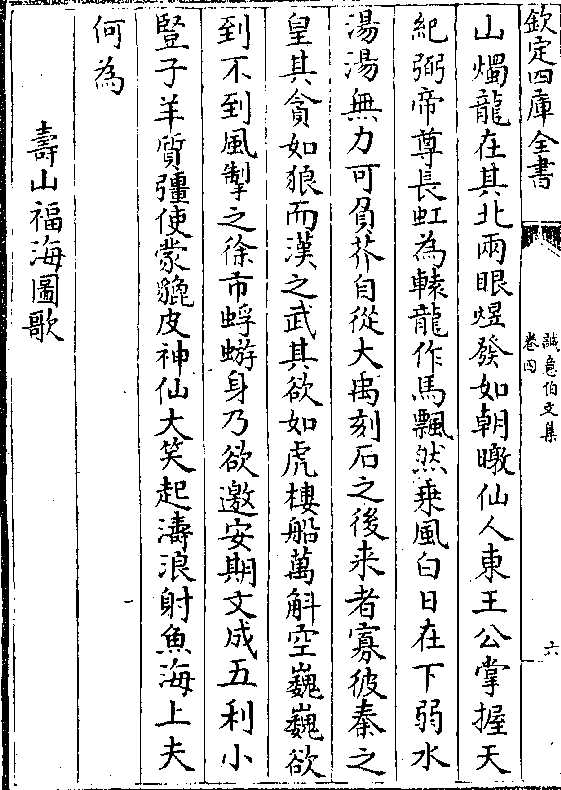 欽定四庫全書
誠意伯文集
卷四
六
山燭龍在其北兩眼煜發如朝暾仙人東王公掌握天
紀弼帝尊長虹為轅龍作馬飄然乗風白日在下弱水
湯湯無力可負芥自從大禹刻石之後来者寡彼秦之
皇其貪如狼而漢之武其欲如虎樓船萬斛空巍巍欲
到不到風掣之徐市蜉蝣身乃欲邀安期文成五利小
豎子羊質彊使蒙貔皮神仙大笑起濤浪射魚海上夫
何為
壽山福海圖歌